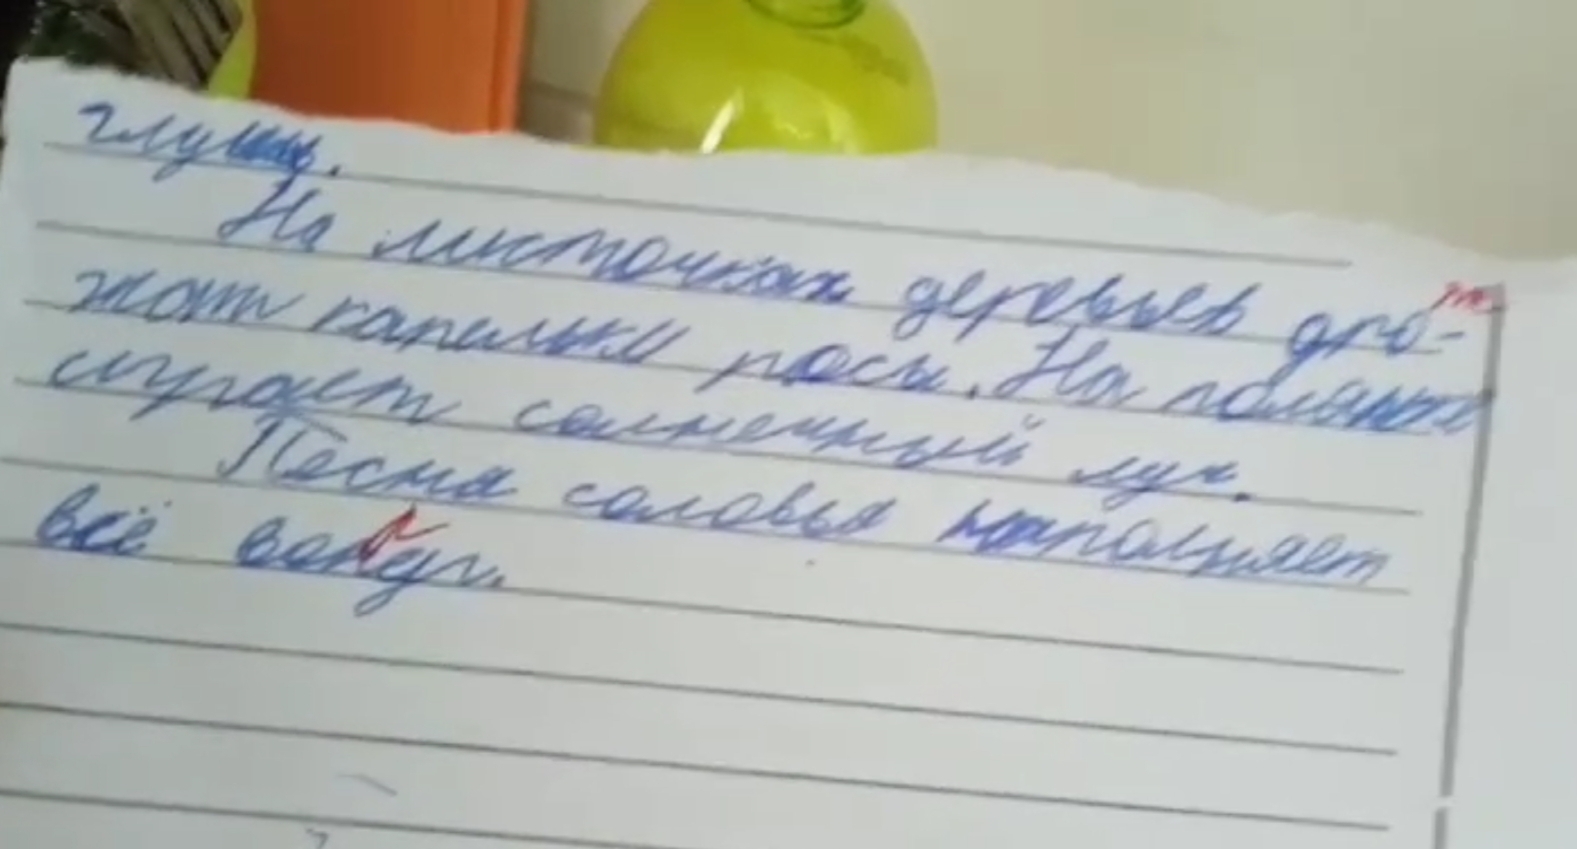 глушь.
На листочках деревьев дро-
жат капельки росы. На полянки
спугает солнечный луч.
Песня соловья наполняет
всё вокуг.